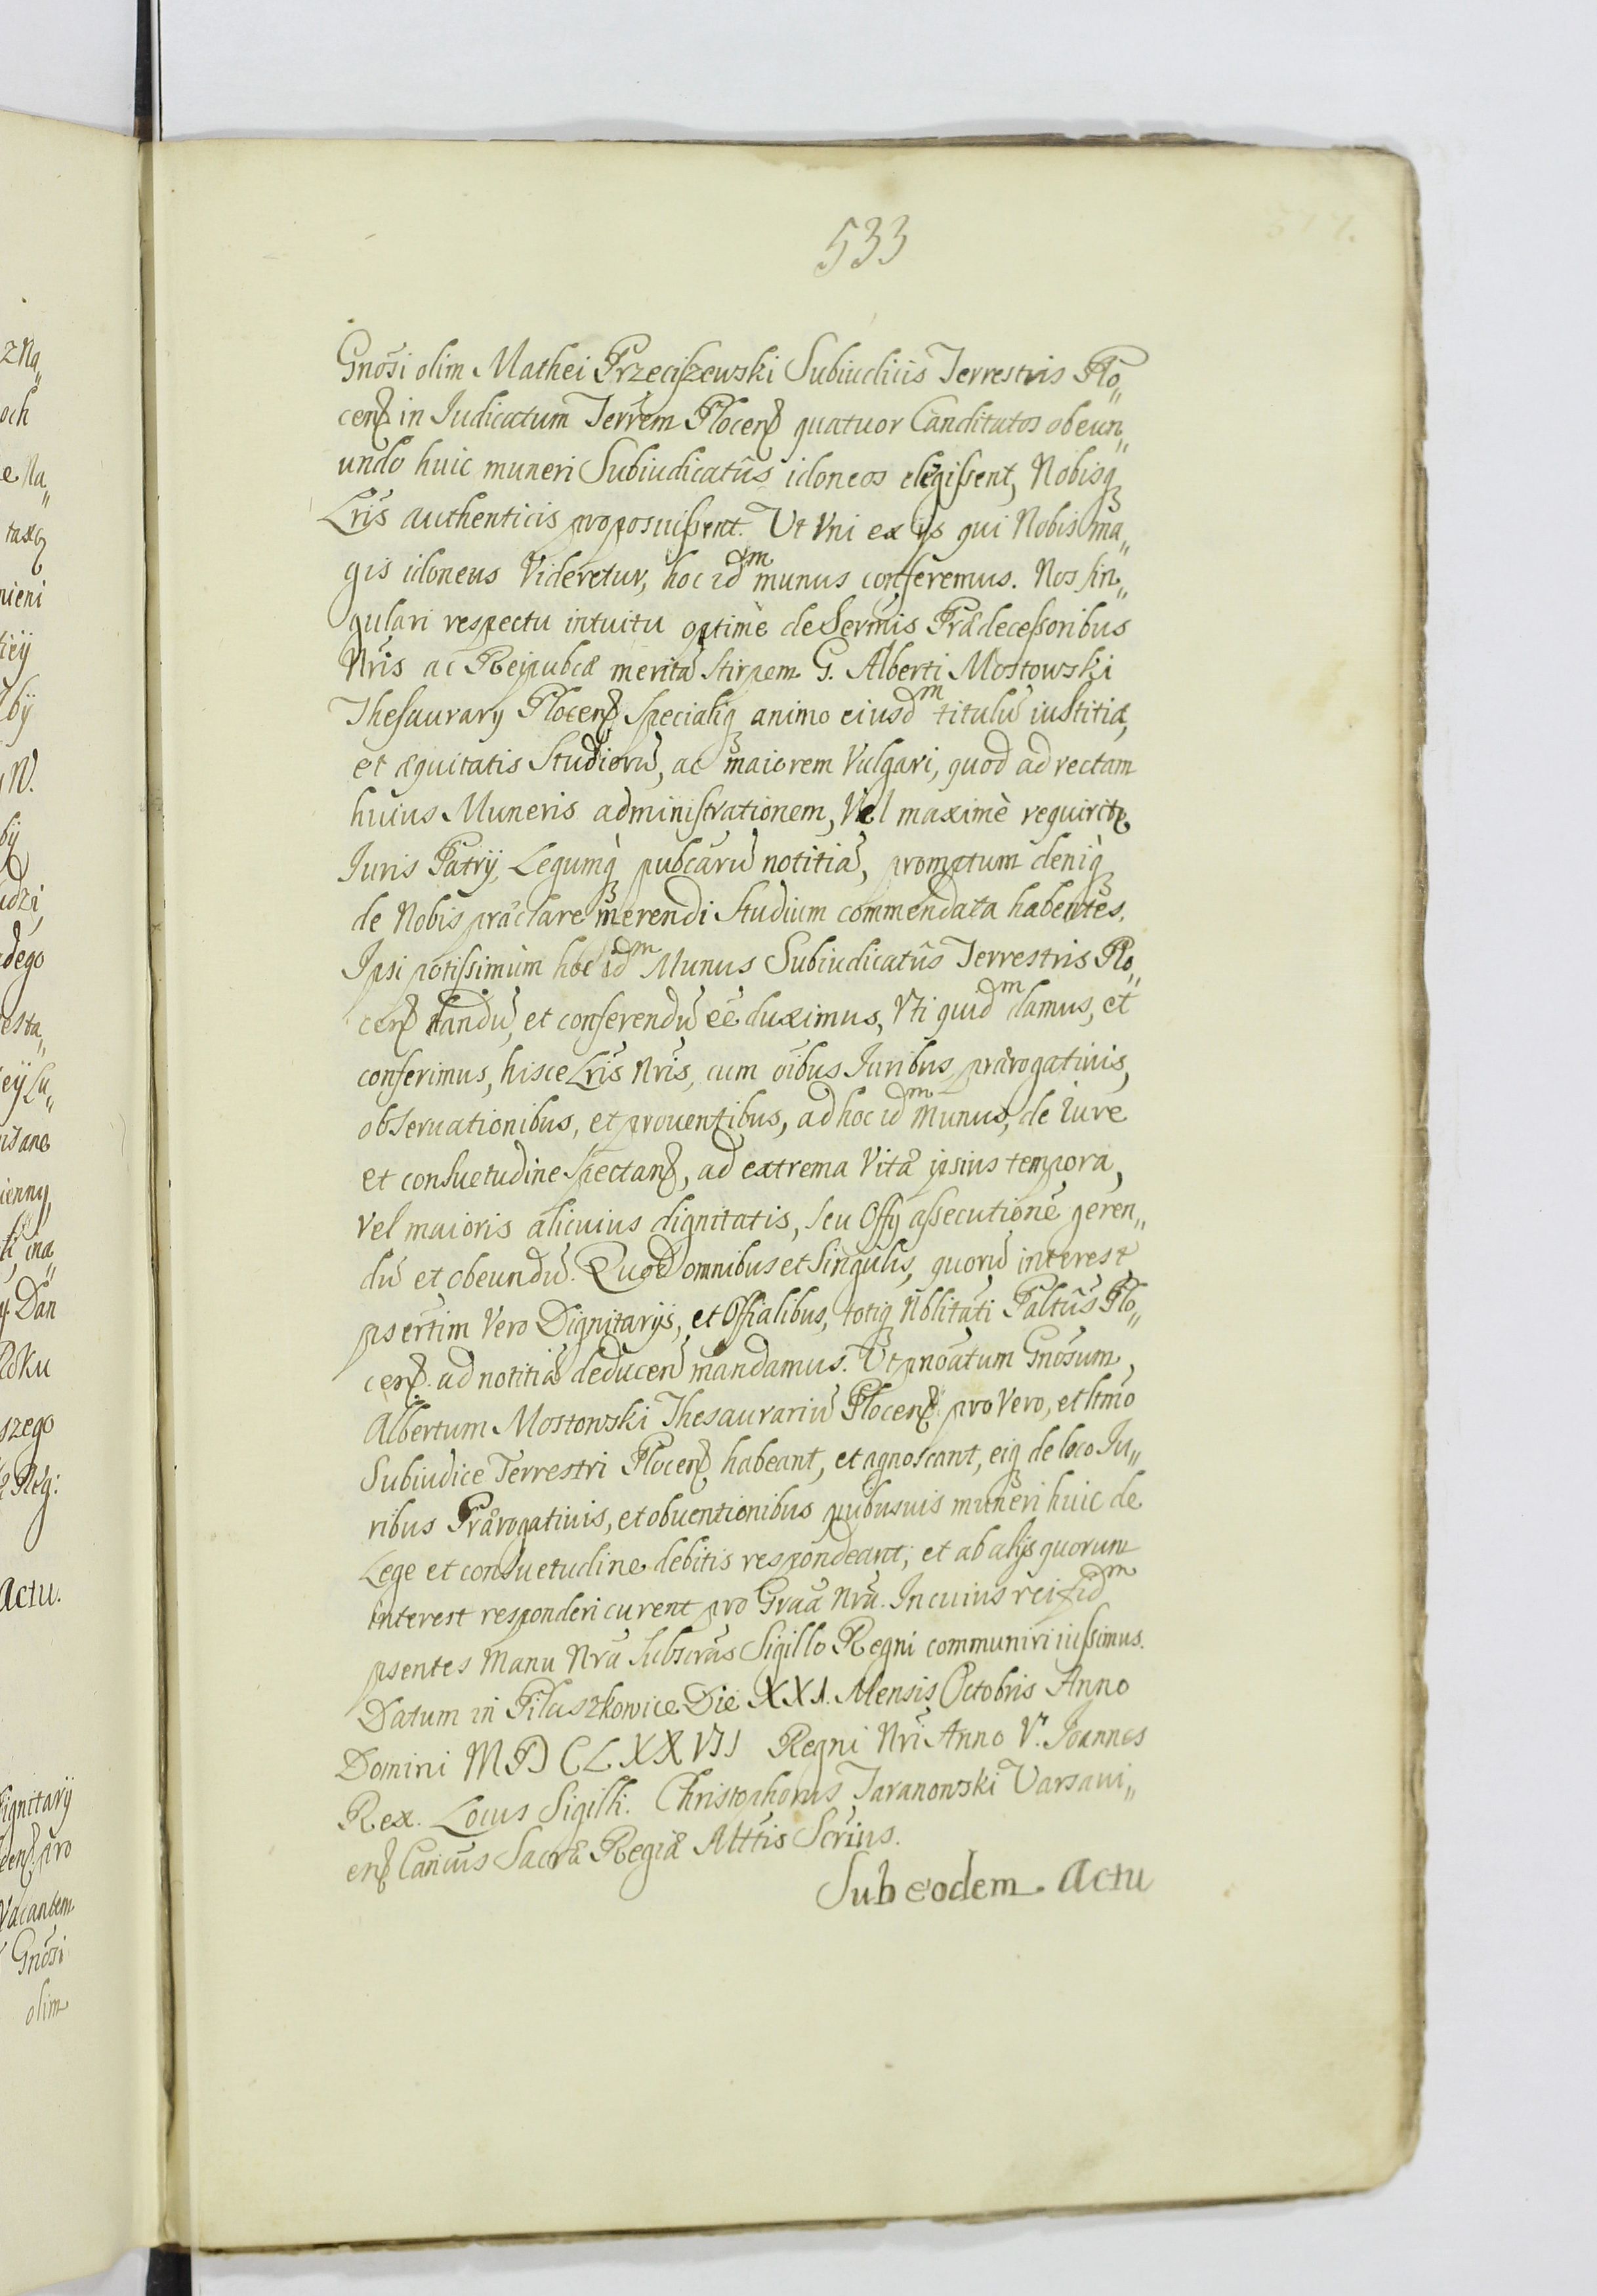 533
Gnōsi olim Mathei Przeciszewski Subiudicis Terrestris Plo„
cenß in Iudicatum Terrēm Plocenß quatuor Canditatos obeun„
undo huic muneri Subiudicatûs idoneos elegissent, Nobisq
Lrīs authenticis proposuissent. Ut Vni ex ijs qui Nobis ma„
gis idoneus Videretur, hoc idm munus conferemus. Nos sin„
gulari respectu intuitu optimè de Sermīs Prædecessoribus
Nrīs ac Reipubcæ meritā stirpem G. Alberti Mostowski
Thesaurary Plocenß Specialiq animo eiusdm titulū iustitiæ,
et æquitatis Studiorū, ac maiorem Vulgari, quod ad rectam
huius Muneris administrationem, Vel maximè requirit
Iuris Patrij, Legumq̀ pubcarū notitiā, promptum deniq̀
de Nobis præclare merendi Studium commendata habentes.
Ipsi potissimùm hoc idm Munus Subiudicatûs Terrestris Plo„
cenß dandū, et conferendū eē duximus, Vti quidm damus, et
conferimus, hisce Lrīs Nrīs, cum oībus Iuribus, prærogativis,
obseruationibus, et prouentibus, ad hoc idm Munus, de Iure
et consuetudine Spectanß, ad extrema Vitæ ipsius tempora,
Vel maioris alicuius dignitatis, seu Offy assecutionē geren„
dū et obeundū. Quod omnibus et Singulis, quorū interest
psertim Vero Dignitarijs, et Offialibus, totiq Nblitāti Paltūs Plo„
cenß. ad notitiā deducen̄ mandamus. Ut pnoātum Gnōsum
Albertum Mostowski Thesaurariū Plocenß. pro Vero, et ltmō
Subiudice Terrestri Plocenß habeant, et agnoscant, eiq de loco Iu„
ribus Prærogativis, et obuentionibus quibusuis muneri huic de
Lege et consuetudine debitis respondeant, et ab alijs quorum
interest responderi curent pro Grāa Nrā. In cuius rei fidm
psentes Manu Nrā Subscrās Sigillo Regni communiri iussimus.
Datum in Pilaszkowice Die XXI. Mensis Octobris Anno
Domini MDCLXXVII Regni Nri Anno V. Ioannes
Rex. Locus Sigilli. Christophorus Taranowski Varsaui„
enß Canīcus Sacræ Regiæ Mttis Scrius.
Sub eodem Actu